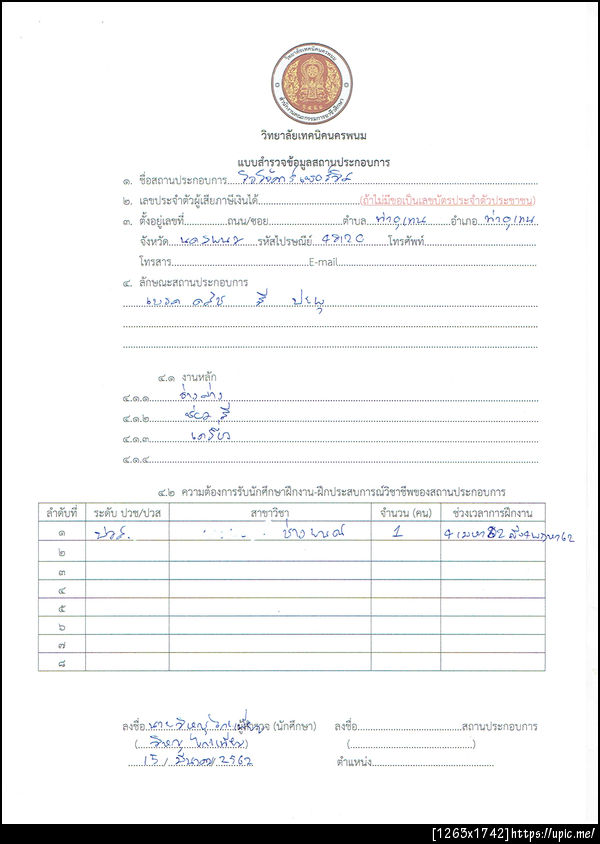 วิทยาลัยเทคนิคนครพนม
สำนักงานคณะกรรมการอาชีวศึกษา
วิทยาลัยเทคนิคนครพนม
แบบสำรวจข้อมูลสถานประกอบการ
๑. ชื่อสถานประกอบการ
๒. เลขประจำตัวผู้เสียภาษีเงินได้ (ถ้าไม่มีขอเป็นเลขบัตรประจำตัวประชาชน)
๓. ตั้งอยู่เลขที่ ถนน/ซอย ตำบล ท่าอุเทน อำเภอ ท่าอุเทน
จังหวัด นครพนม รหัสไปรษณีย์ 48120 โทรศัพท์
โทรสาร E-mail
๔. ลักษณะสถานประกอบการ
เบรค ครัช สี ปะผุ
๔.๑ งานหลัก
๔.๑.๑ ช่างล่าง
๔.๑.๒ ซ่อม สี
๔.๑.๓ เครื่อง
๔.๑.๔
๔.๒ ความต้องการรับนักศึกษาฝึกงาน-ฝึกประสบการณ์วิชาชีพของสถานประกอบการ
ลำดับที่ ระดับ ปวช/ปวส สาขาวิชา จำนวน (คน) ช่วงเวลาการฝึกงาน
๑ ปวส. ช่างยนต์ 1 4 เมษา 62 ถึง 4 พฤษภา 62
๒
๓
๔
๕
๖
๗
๘
ลงชื่อ นาย ผู้สำรวจ (นักศึกษา) ลงชื่อ สถานประกอบการ
( ) ( )
15 / มีนาคม / 2562 ตำแหน่ง
[1263x1742]https://upic.me/